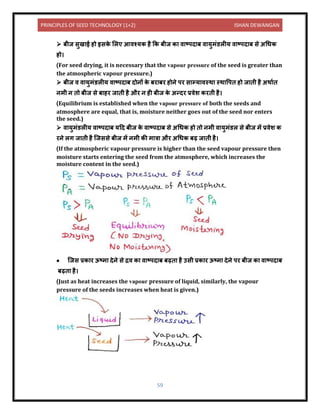 PRINCIPLES OF SEED TECHNOLOGY (1+2) ISHAN DEWANGAN
➢ बीज सुखाई हो इसके लिए आवश्यक है कि बीज का वाष्पदाब वायुमंडलीय वाष्पदाब से अधिक
हो।
(For seed drying, it is necessary that the vapour pressure of the seed is greater than
the atmospheric vapour pressure.)
➢ बीज व वायुमंडलीय वाष्पदाब दोनों के बराबर होने पर साम्यावस्था स्थापित हो जाती है अर्थात
नमी न तो बीज से बाहर जाती है और न ही बीज के अन्दर प्रवेश करती है।
(Equilibrium is established when the vapour pressure of both the seeds and
atmosphere are equal, that is, moisture neither goes out of the seed nor enters
the seed.)
➢ वायुमंडलीय वाष्पदाब यदि बीज के वाष्पदाब से अधिक हो तो नमी वायुमंडल से बीज में प्रवेश क
रने लग जाती है जिससे बीज में नमी की मात्रा और अधिक बढ़ जाती है।
(If the atmospheric vapour pressure is higher than the seed vapour pressure then
moisture starts entering the seed from the atmosphere, which increases the
moisture content in the seed.)
PS = Vapour pressure of Seed
PA = Vapour pressure of Atmosphere
PS > PA PS = PA PS < PA
Seed Drying
Equilibrium
(No Drying,
No Moistening)
Seed Moistening
• जिस प्रकार ऊष्मा देने से द्रव का वाष्पदाब बढ़ता है उसी प्रकार ऊष्मा देने पर बीज का वाष्पदाब
बढ़ता है।
(Just as heat increases the vapour pressure of liquid, similarly, the vapour
pressure of the seeds increases when heat is given.)
Heat
Liquid
Vapour Pressure ↑
Heat
Seed
Vapour Pressure ↑
59